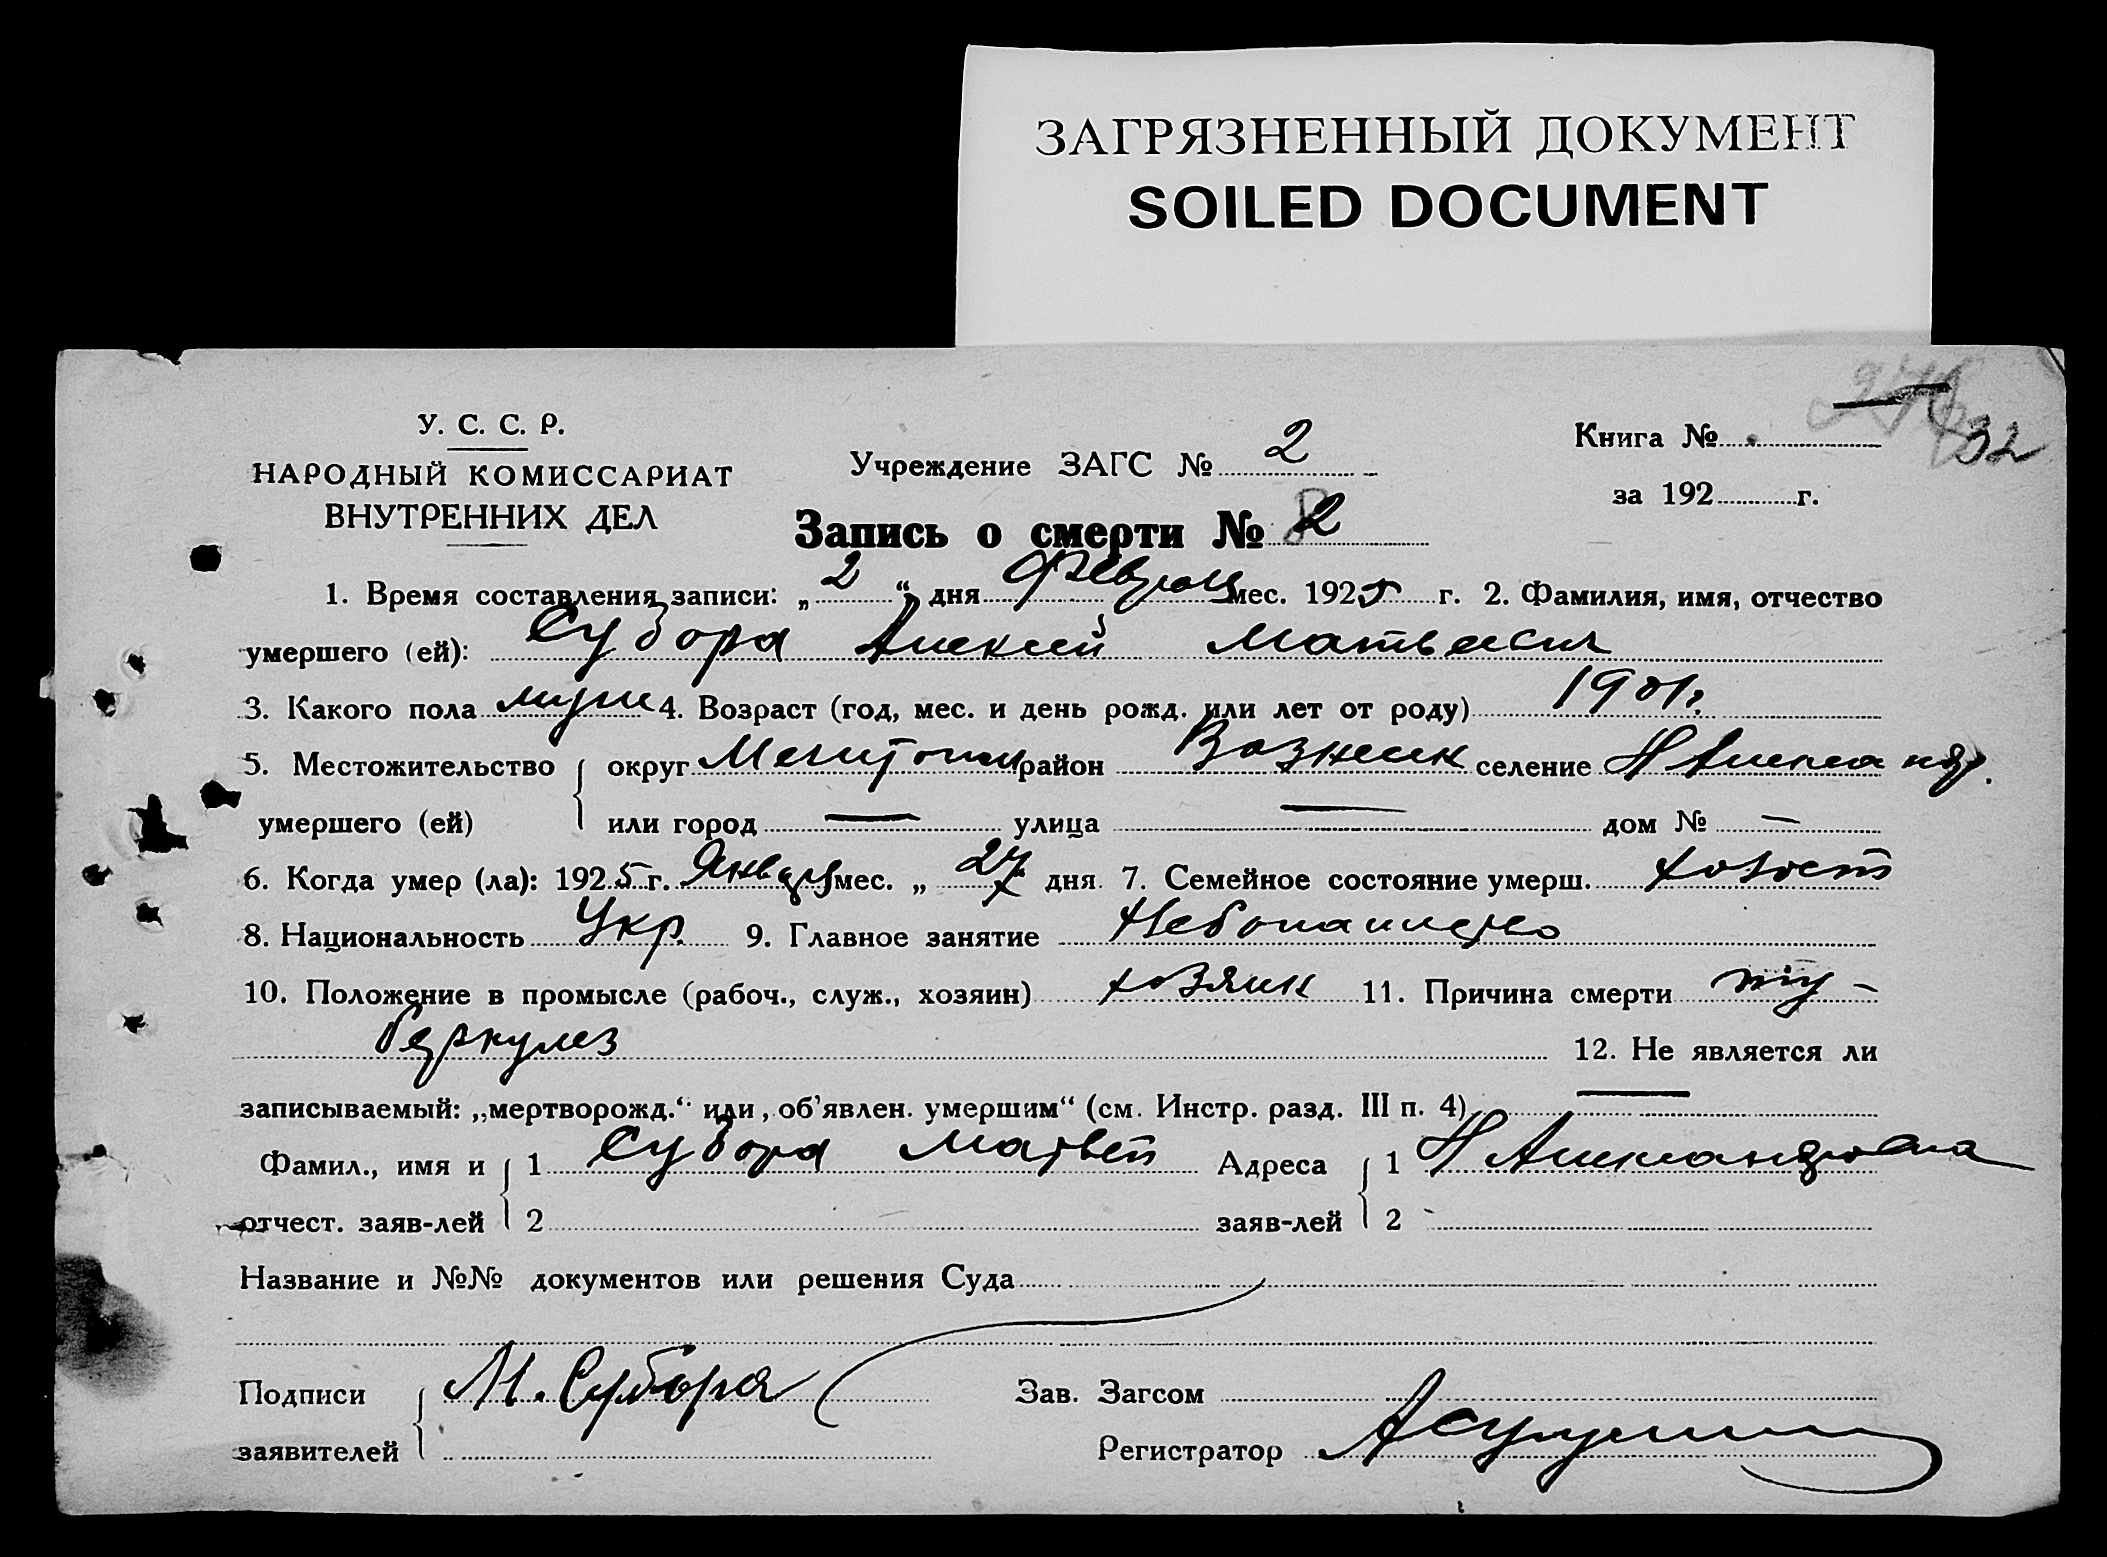 ЗАГРЯЗНЕННЫЙ ДОКУМЕНТ
SOILED DOCUMENT
У. С. С. Р.
НАРОДНЫЙ КОМИССАРИАТ
ВНУТРЕННИХ ДЕЛ
Учреждение ЗАГС № 2
Книга №
32
за 192 г.
Запись о смерти № 2
1. Время составления записи: „ 2 “ дня Февраля мес. 1925 г. 2. Фамилия, имя, отчество
умершего (ей): Субора Алексей Матвеевич
3. Какого пола муж 4. Возраст (год, мес. и день рожд. или лет от роду) 1901 г.
5. Местожительство округ Мелитопол район Вознесик селение Н Александр.
умершего (ей) или город — улица — дом № —
6. Когда умер (ла): 1925 г. Января мес. „ 27 дня 7. Семейное состояние умерш. холост
8. Национальность Укр. 9. Главное занятие Хлебопашество
10. Положение в промысле (рабоч., служ., хозяин) хозяин 11. Причина смерти ту-
беркулез 12. Не является ли
записываемый: „мертворожд.“ или „об’явлен. умершим“ (см. Инстр. разд. III п. 4) —
Фамил., имя и 1 Субора Матвей Адреса 1 Н Александровка
отчест. заяв-лей 2 заяв-лей 2
Название и №№ документов или решения Суда
Подписи М. Субора Зав. Загсом
заявителей Регистратор